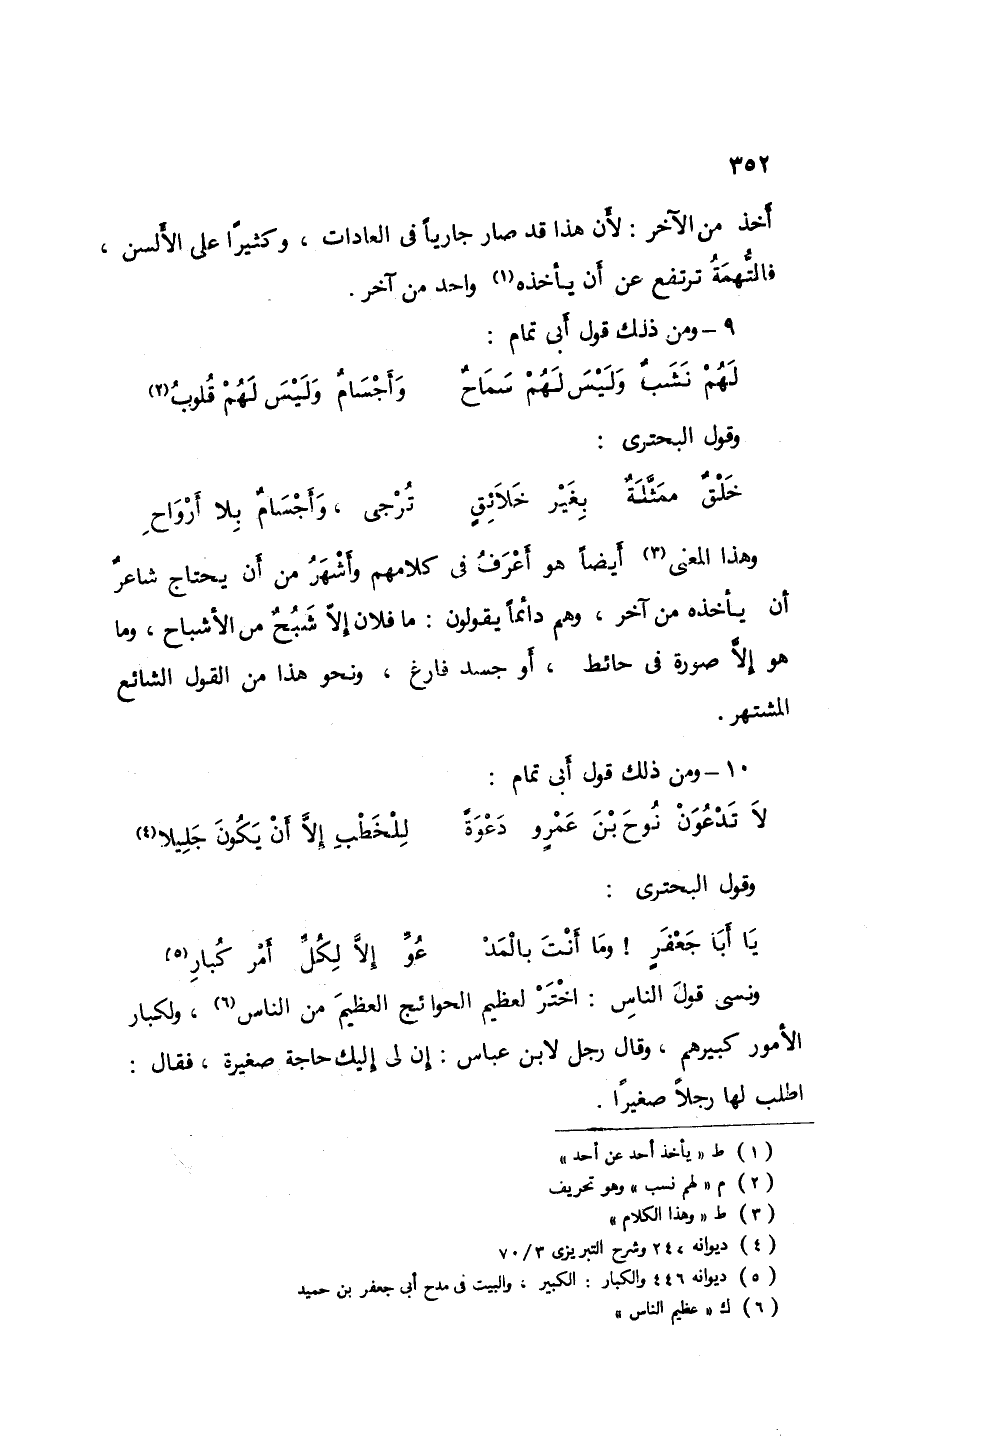 ٣٥٢
أَخذ من الآخر : لأَن هذا قد صار جارياً فى العادات ، وكثيرًا على الأَلسن ،
فالتُّهمَةُ ترتفع عن أَن يأخذه(١) واحد من آخر .
٩ – ومن ذلك قول أَبى تمام :
لَهُمْ نَشَبٌ وَلَيْسَ لَهُمْ سَمَاحٌ وَأَجْسَامٌ وَلَيْسَ لَهُمْ قُلوبُ(٢)
وقول البحترى :
خَلْقٌ ممَثَّلَةٌ بِغَيْر خَلاَئِقٍ تُرْجى ، وَأَجْسَامٌ بِلا أَرْوَاحِ
وهذا المعنى(٣) أَيضاً هو أَعْرَفُ فى كلامهم وأَشْهَرُ من أَن يحتاج شاعرٌ
أن يأخذه من آخر ، وهم دائماً يقولون : ما فلان إلاَّ شَبُحٌ من الأشباح ، وما
هو إلاَّ صورة فى حائط ، أَو جسد فارغ ، ونحو هذا من القول الشائع
المشتهر .
١٠ – ومن ذلك قول أَبى تمام :
لاَ تَدْعُوَنْ نُوحَ بْنَ عَمْرٍو دَعْوَةً لِلْخَطْبِ إلاَّ أَنْ يَكُونَ جَلِيلا(٤)
وقول البحترى :
يَا أَبَا جَعْفَرٍ ! ومَا أَنْتَ بالْمَدْ عُوِّ إلاَّ لِكُلِّ أَمْر كُبارِ(٥)
ونسى قولَ الناسِ : اخْتَرْ لعظيم الحوائج العظيمَ من الناس(٦) ، ولكبار
الأمور كبيرهم ، وقال رجل لابن عباس : إن لى إليك حاجة صغيرة ، فقال :
اطلب لها رجلاً صغيرًا .
(١) ط « يأخذ أحد عن أحد »
(٢) م « لهم نسب » وهو تحريف
(٣) ط « وهذا الكلام »
(٤) ديوانه ٢٤٧ وشرح التبريزى ٣/ ٧٠
(٥) ديوانه ٤٤٦ والكبار : الكبير ، والبيت فى مدح أبى جعفر بن حميد
(٦) ك « عظيم الناس »